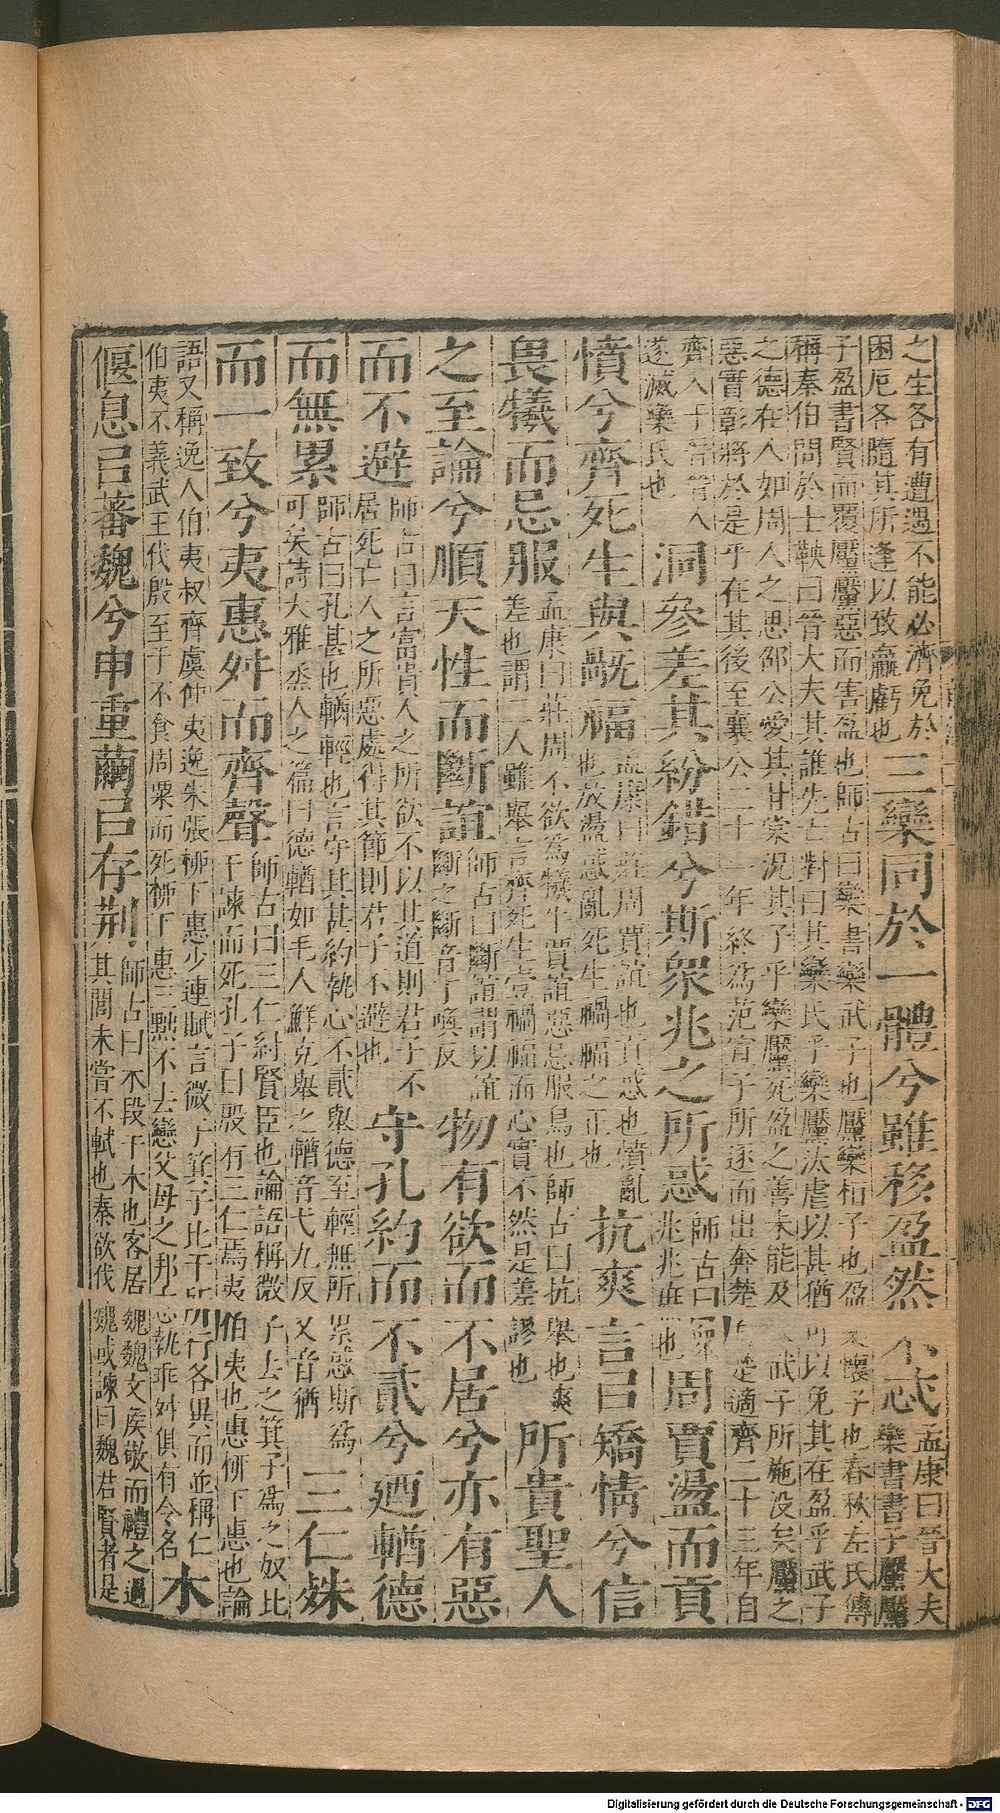 之生各有遭遇不能必濟免於
困厄各隨其所逢以致贏虧也
三欒同於一體兮雖移盈然不忒
孟康曰晉大夫
欒書書子黶黶
子盈書賢而覆黶黶惡而害盈也師古曰欒書欒武子也黶欒桓子也盈欒懷子也春秋左氏傳
稱秦伯問於士鞅曰晉大夫其誰先亡對曰其欒氏乎欒黶汰虐以甚猶可以免其在盈乎武子
之德在人如周人之思邵公愛其甘棠況其子乎欒黶死盈之善未能及人武子所施没矣黶之
惡實彰將於是乎在其後至襄公二十一年終爲范宣子所逐而出奔楚自楚適齊二十三年自
齊入于晉晉人
遂滅欒氏也
洞參差其紛錯兮斯衆兆之所惑
師古曰衆
兆兆庶也
周賈盪而貢
憤兮齊死生與旤福
孟康曰莊周賈誼也貢惑也憤亂
也放盪惑亂死生禍福之正也
抗爽言㠯矯情兮信
畏犧而忌服
孟康曰莊周不欲爲犧牛賈誼惡忌服鳥也師古曰抗舉也爽
差也謂二人雖舉言齊死生壹禍福而心實不然是差謬也
所貴聖人
之至論兮順天性而斷誼
師古曰斷誼謂以誼
斷之斷音丁喚反
物有欲而不居兮亦有惡
而不避
師古曰言富貴人之所欲不以其道則君子不
居死亡人之所惡處得其節則君子不避也
守孔約而不貳兮廼輶德
而無累
師古曰孔甚也輶輕也言守其甚約執心不貳舉德至輕無所累惑斯爲
可矣詩大雅烝人之篇曰德輶如毛人鮮克舉之輶音弋九反又音猶
三仁殊
而一致兮夷惠舛而齊聲
師古曰三仁紂賢臣也論語稱微子去之箕子爲之奴比
干諫而死孔子曰殷有三仁焉夷伯夷也惠柳下惠也論
語又稱逸人伯夷叔齊虞仲夷逸朱張柳下惠少連賦言微子箕子比干所行各異而並稱仁
伯夷不義武王伐殷至于不食周粟而死柳下惠三黜不去戀父母之邦志執乖舛俱有令名
木
偃息㠯蕃魏兮申重繭㠯存荆
師古曰木段干木也客居魏魏文侯敬而禮之過
其閭未嘗不軾也秦欲伐魏或諫曰魏君賢者是
Digitalisierung gefördert durch die Deutsche Forschungsgemeinschaft - DFG